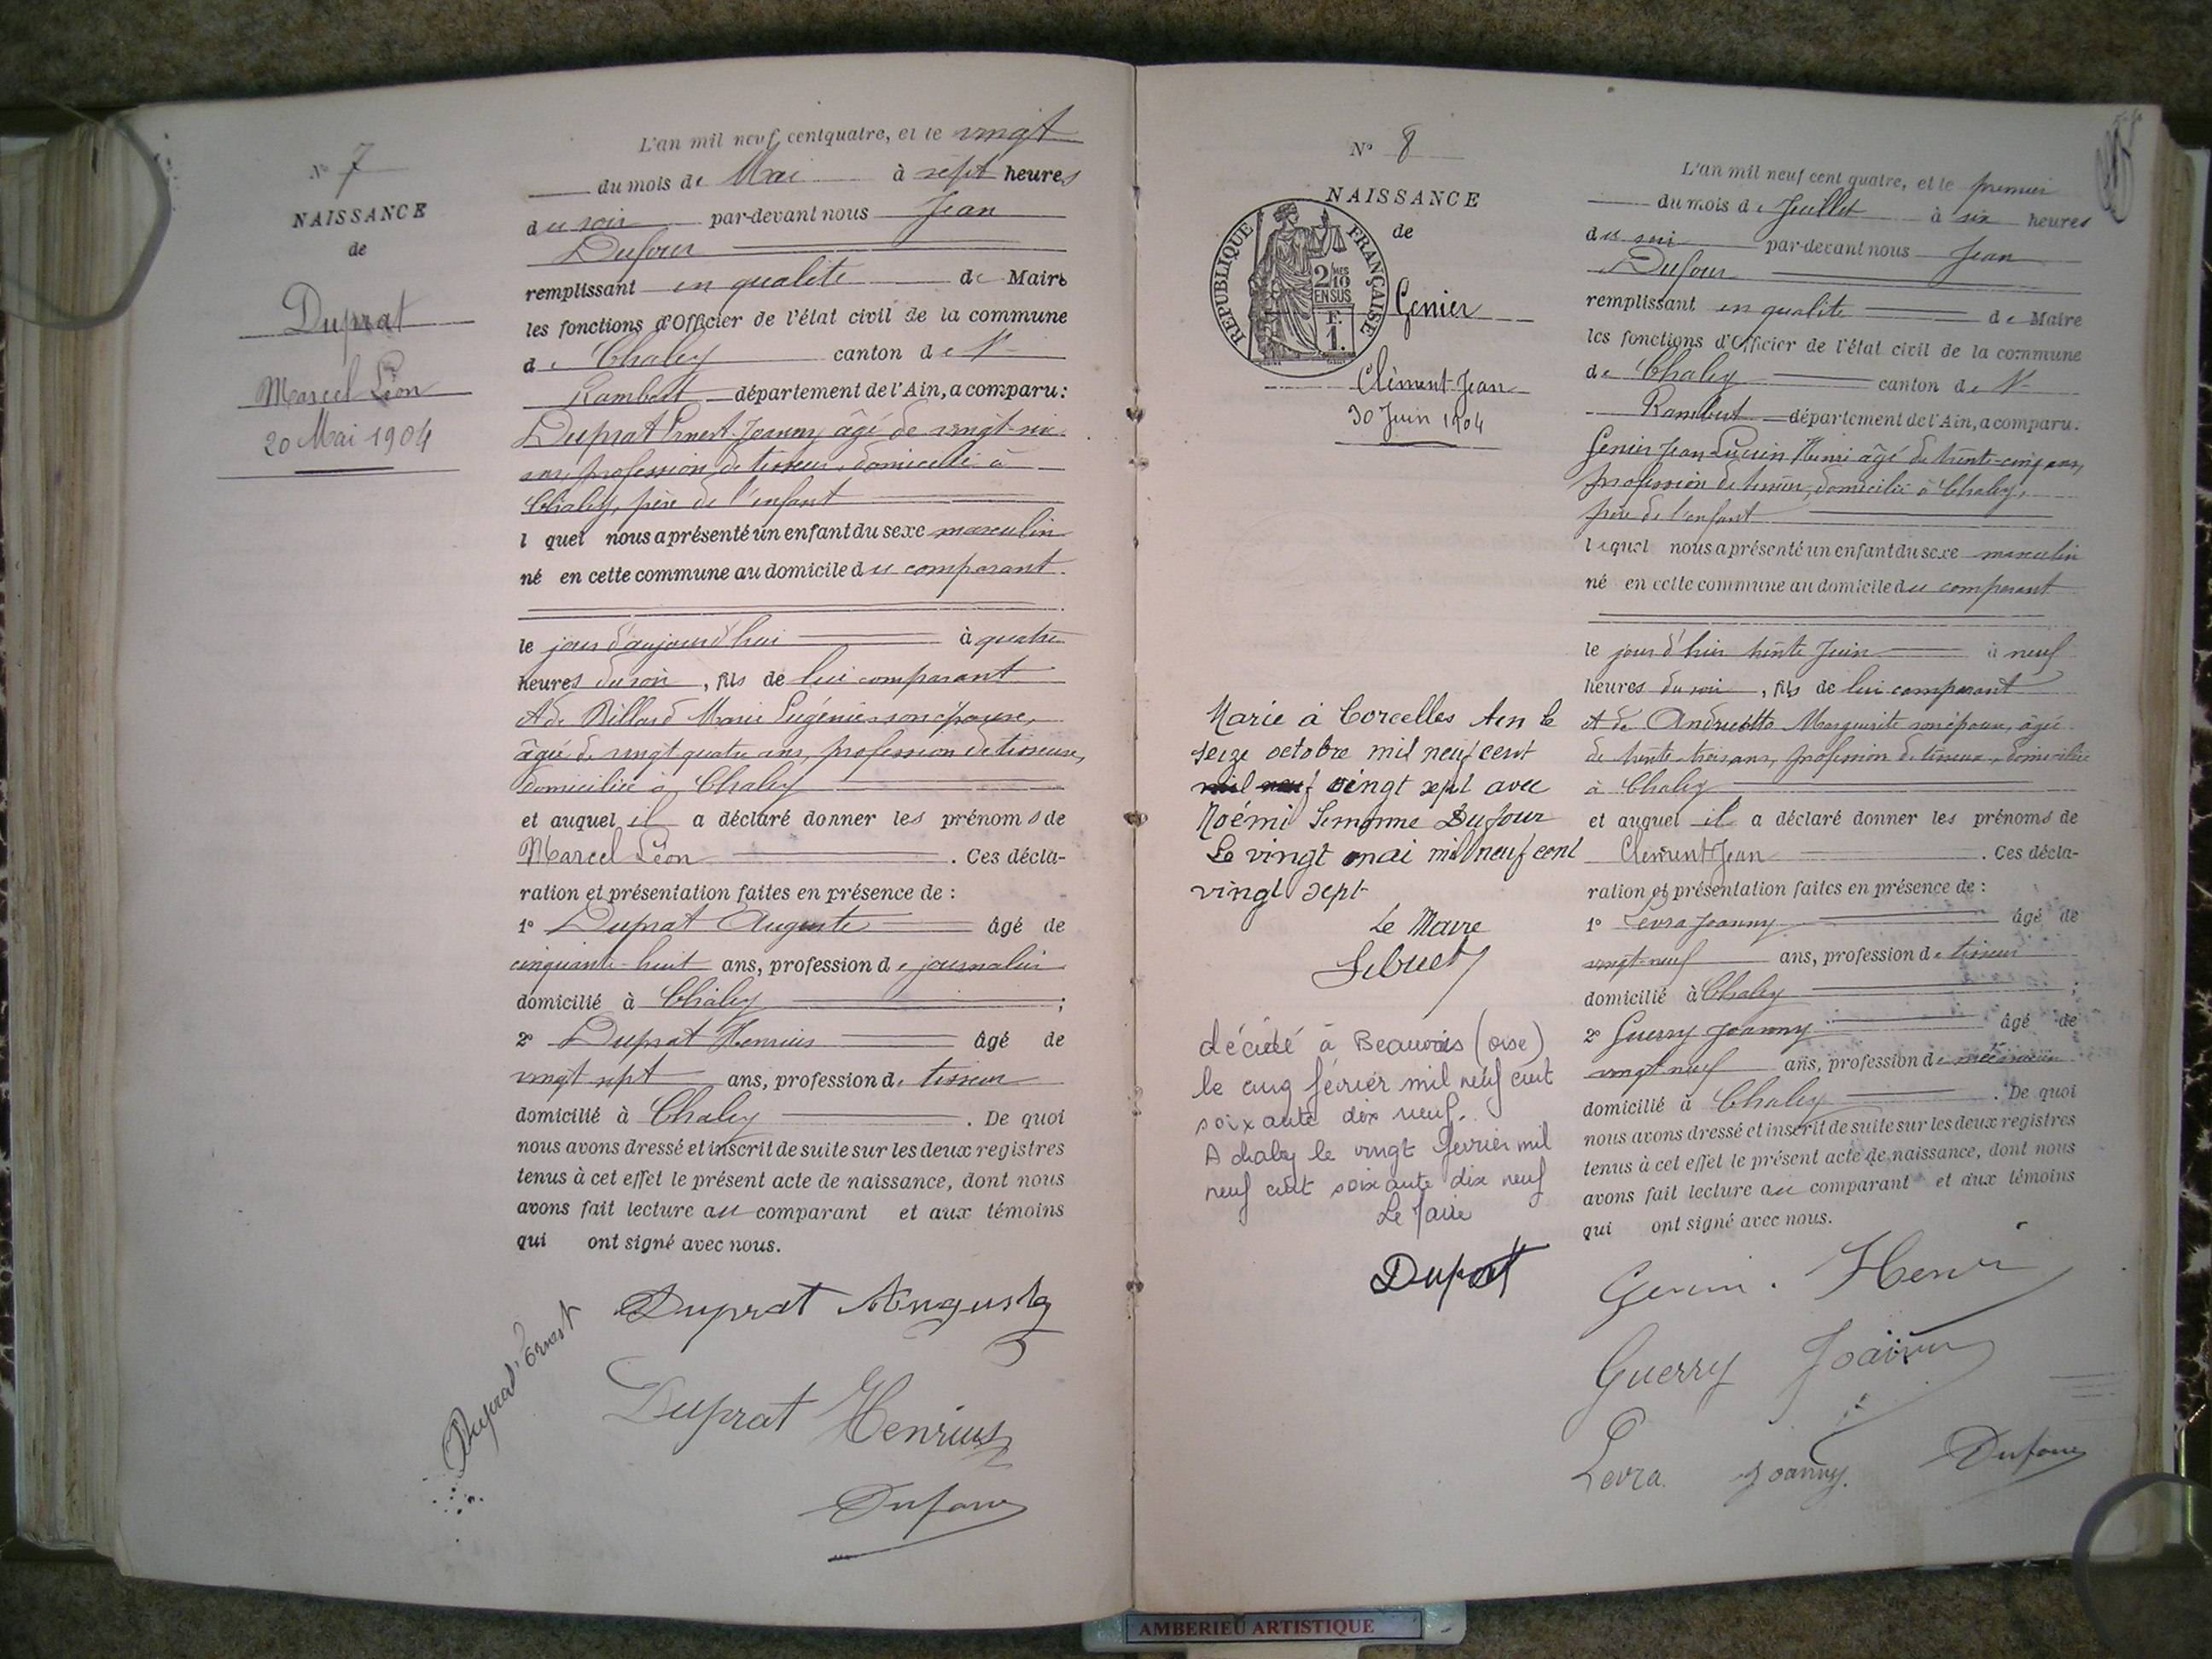 N° 7
NAISSANCE
de
Duprat
Marcel Léon
20 Mai 1904
L'an mil neuf cent quatre, et le vingt
du mois de Mai à sept heures
du soir par-devant nous Jean
Dufour
remplissant en qualité de Maire
les fonctions d'Officier de l'état civil de la commune
de Chaley canton de St
Rambert département de l'Ain, a comparu:
Duprat Ernest Joanny âgé de vingt-six
ans, profession de tisseur, domicilié à
Chaley, père de l'enfant
l quel nous a présenté un enfant du sexe masculin
né en cette commune au domicile du comparant
le jour d'aujourd'hui à quatre
heures du soir, fils de lui comparant
et de Billard Marie Eugénie son épouse,
âgée de vingt quatre ans, profession de tisseuse,
domiciliée à Chaley
et auquel il a déclaré donner les prénoms de
Marcel Léon. Ces décla-
ration et présentation faites en présence de :
1° Duprat Auguste âgé de
cinquante-huit ans, profession de journalier
domicilié à Chaley ;
2° Duprat Henrius âgé de
vingt sept ans, profession de tisseur
domicilié à Chaley. De quoi
nous avons dressé et inscrit de suite sur les deux registres
tenus à cet effet le présent acte de naissance, dont nous
avons fait lecture au comparant et aux témoins
qui ont signé avec nous.
Duprat Auguste
Duprat Ernest
Duprat Henrius
Dufour
N° 8
NAISSANCE
de
REPUBLIQUE FRANÇAISE
2/10 MES
EN SUS
F.
1.
Genier
Clément Jean
30 Juin 1904
Marie à Corcelles Ain le
seize octobre mil neuf cent
mil neuf vingt sept avec
Noémi Simonne Dufour
Le vingt mai mil neuf cent
vingt sept
Le Maire
décédé à Beauvais (oise)
le cinq février mil neuf cent
soixante dix neuf.
A chaley le vingt février mil
neuf cent soixante dix neuf
Le Maire
Duprat
L'an mil neuf cent quatre, et le premier
du mois de Juillet à six heures
du soir par-devant nous Jean
Dufour
remplissant en qualité de Maire
les fonctions d'Officier de l'état civil de la commune
de Chaley canton de St
Rambert département de l'Ain, a comparu:
Genier Jean Lucien Henri âgé de trente-cinq ans,
profession de tisseur, domicilié à Chaley,
père de l'enfant
lequel nous a présenté un enfant du sexe masculin
né en cette commune au domicile du comparant
le jour d'hier trente Juin à neuf
heures du soir, fils de lui comparant
et de Andreotto Marguerite son épouse, âgée
de trente-trois ans, profession de tisseuse, domiciliée
à Chaley
et auquel il a déclaré donner les prénoms de
Clément Jean. Ces décla-
ration et présentation faites en présence de :
1° Levra Joanny âgé de
vingt-neuf ans, profession de tisseur
domicilié à Chaley ;
2° Guerry Joanny âgé de
vingt neuf ans, profession de
domicilié à Chaley. De quoi
nous avons dressé et inscrit de suite sur les deux registres
tenus à cet effet le présent acte de naissance, dont nous
avons fait lecture au comparant et aux témoins
qui ont signé avec nous.
Henri
Guerry
Levra Joanny.
Dufour
AMBERIEU ARTISTIQUE